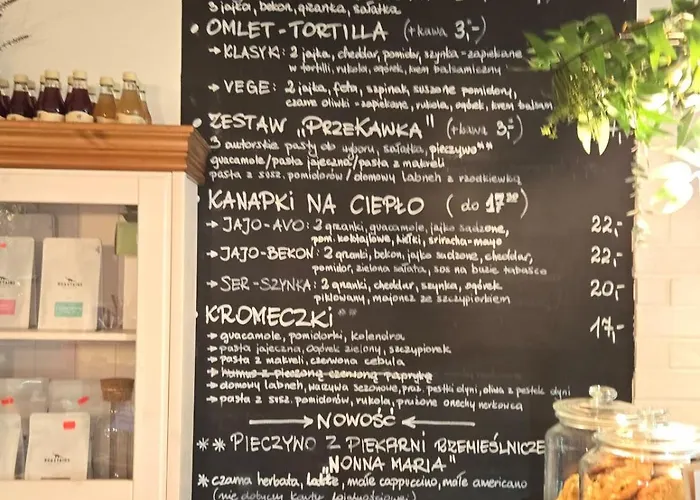 3 jajka, bekon, grzanka, sałatka
• OMLET-TORTILLA (+kawa 3,-)
→ KLASYK: 2 jajka, cheddar, pomidor, szynka - zapiekane
w tortilli, rukola, ogórek, krem balsamiczny
→ VEGE: 2 jajka, feta, szpinak, suszone pomidory,
czarne oliwki - zapiekane, rukola, ogórek, krem balsam
• ZESTAW „PRZEKAWKA" (+kawa 3,-)
3 autorskie pasty do wyboru, sałatka, pieczywo**
guacamole/pasta jajeczna/pasta z makreli
pasta z susz. pomidorów/domowy labneh z rzodkiewką
• KANAPKI NA CIEPŁO (do 17:30)
→ JAJO-AVO: 2 grzanki, guacamole, jajko sadzone, 22,-
pom. koktajlowe, kiełki, sriracha-mayo
→ JAJO-BEKON: 2 grzanki, bekon, jajko sadzone, cheddar, 22,-
pomidor, zielona sałata, sos na bazie tabasco
→ SER-SZYNKA: 2 grzanki, cheddar, szynka, ogórek 20,-
piklowany, majonez ze szczypiorkiem
• KROMECZKI** 17,-
→ guacamole, pomidorki, kolendra
→ pasta jajeczna, ogórek zielony, szczypiorek
→ pasta z makreli, czerwona cebula
→ humus z pieczoną czerwoną papryką
→ domowy labneh, warzywa sezonowe, praż. pestki dyni, oliwa z pestek dyni
→ pasta z susz. pomidorów, rukola, prażone orzechy nerkowca
→ NOWOŚĆ ←
** PIECZYWO Z PIEKARNI RZEMIEŚLNICZE
„NONNA MARIA"
* czarna herbata, latte, małe cappuccino, małe americano
(nie dotyczy karty lojalnościowej)